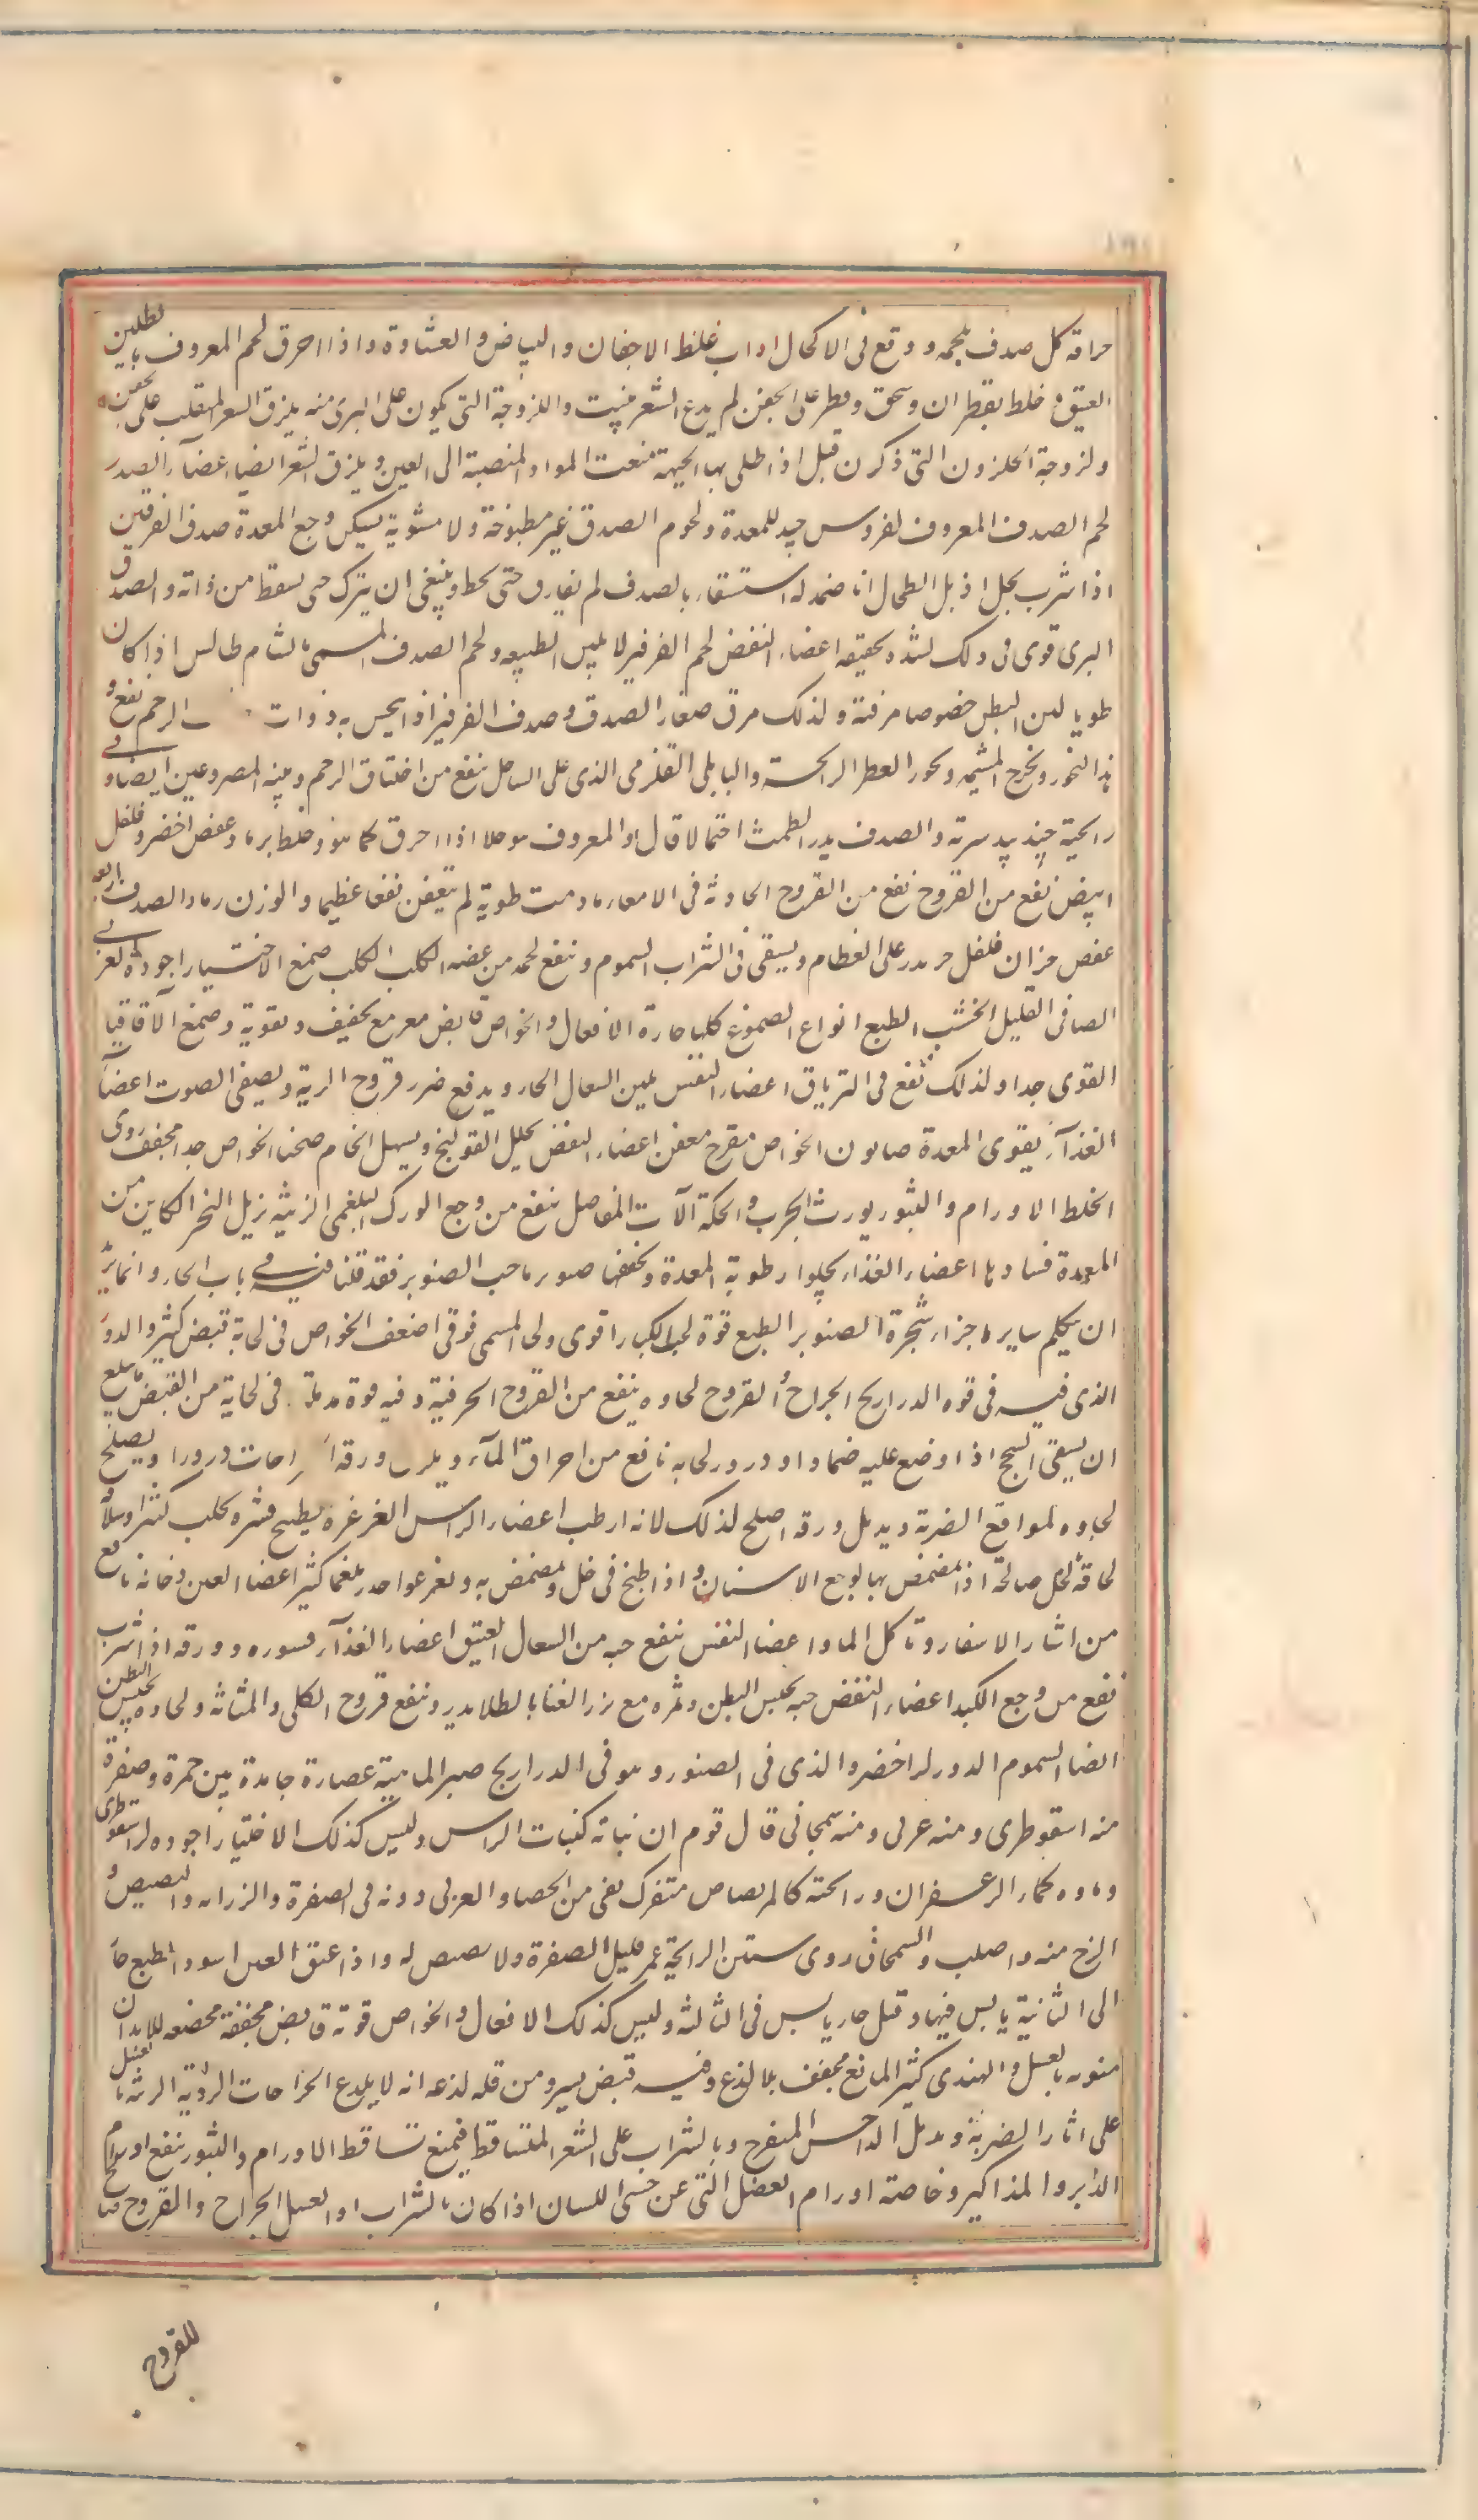 حراقة كل صدف بلحمه ووقع فى الاكحال اذاب غلظ الاجفان والبياض والغشاوة واذا احرق لحم المعروف بايطلين
العتيق و خلط بقطران وسحق وقطر على الجفن لم يدع الشعر ينبت واللزوجة التى يكون على البرى منه يلزق الشعر المنقلب على الجفن
ولزوجة الحلزون التى ذكرن قبل اذا طلى بها الجبهة منعت المواد المنصبة الى العين ويلزق الشعر ايضا اعضآء الصدر
لحم الصدف المعروف لفروس جيد للمعدة ولحوم الصدف غير مطبوخة ولا مشوية يسكن وجع المعدة صدف الفرفين
اذا شرب بخل اذبل الطحال اذا ضمد له استسقاء بالصدف لم يفارق حتى يحط وينبغى ان يترك حتى يسقط من ذاته والصدف
البرى قوى فى ذلك لشدة تحفيفه اعضاء النفض لحم الفرفير لا يلين الطبيعه ولحم الصدف المسمى بالشام طالس اذا كان
طريا لين البطن خصوصا مرقته ولذلك مرق صغار الصدف وصدف الفرفير اذا بحس به ذوات الرحم نفع و
هذا البخور ويخرج المشيمة وبخور العطر الرايحة والبابلى القلزمى الذى على الساحل ينفع من اختناق الرحم وينبه المصروعين ايضا و فى
رايحية جند بيدسترة والصدف يدر الطمث احتمالا قال والمعروف اذا احرق كما هو وخلط برماده عفص اخضر وفلفل
ابيض نفع من القروح نفع من القروح الحادثه فى الامعاء مادمت طرية لم تعفن نفعا عظيما والوزن رماد الصدف اربعه
عفص جزان فلفل جزء يذر على الطعام ويسقى فى الشراب السموم وينفع لحمه من عضه الكلب الكلب صمغ الاختيار اجوده العربى
الصافى القليل الخشب الطبع انواع الصموغ كلها حارة الافعال والخواص قابض مغر مع تجفيف وتقوية وصمغ الآقاقيا
القوى جدا ولذلك تقع فى الترياق اعضاء النفس يلين السعال الحار ويدفع ضرر قروح الرية ويصفى الصوت اعضآء
الغذآء يقوى المعدة صابون الخواص مقرح معفن اعضاء النفض يحلل القولنج ويسهل الخام صحنا الخواص جدا مجفف ردى
الخلط الاورام والبثور يورث الجرب والحكة آلات المفاصل ينفع من وجع الورك البلغمى الزينه يزيل البخر الكاين من
المعدة فسادها اعضاء الغذاء يجلوا رطوبة المعدة ويجففها صنوبر ماحب الصنوبر فقد قلنا فيه فى باب الحاء وانما نريد
ان نتكلم ساير اجزاء شجرة الصنوبر الطبع قوة لحا الكبار اقوى ولحا المسمى فوقى اضعف الخواص فى لحاية قبض كثير والدود
الذى فيه فى قوه الذراريح الجراح والقروح لحاوه ينفع من القروح الحرقية وفيه قوة مدملة فى لحاية من القبض ما يبلغ
ان يسقى السحج اذا وضع عليه ضمادا و ذرور لحايه نافع من احراق المآء ويلزق ورقه الجراحات ذرورا ويصلح
لحاوه لمواقع الضربة ويدمل ورقه اصلح لذلك لانه ارطب اعضاء الراس الغرغرة بطبيخ قشره يجلب كثيرا وسلاقة
لحاقه بخل صالحة اذا تمضمض بها لوجع الاسنان و اذا طبخ فى خل وتمضمض به وتغرغر احدر بلغما كثيرا اعضا العين دخانه نافع
من انثار الاشفار وتاكل الماق اعضا النفس ينفع حبه من السعال العتيق اعضاء الغذآء قشوره وورقه اذا شرب
نفع من وجع الكبد اعضاء النفض حبه يحبس البطن وثمره مع بزر القثا بالطلا يدر وينفع قروح الكلى والمثانة ولحاوه يحبس البطن
ايضا السموم الدود الاخضر والذى فى الصنوبر هو فى الذراريح صبر الماهية عصارة جامدة بين حمرة وصفرة
منه اسقوطرى ومنه عربى ومنه سمجانى قال قوم ان نباته كنبات الراس وليس كذلك الاختيار اجوده الاسقوطرى
وماوه كماء الزعفران ورايحته كالمر بصاص متفرك نقى من الحصا والعربى دونه فى الصفرة والرزانه والبصيص و
الزج منه واصلب والسمجانى ردى منتن الرايحة عمر قليل الصفرة ولا بصيص له واذا عتق الصبر اسود الطبع حار
الى الثانية يابس فيها وقيل حار يابس فى الثالثه وليس كذلك الافعال والخواص قوتة قابض مجففة محصفه للابدان
منومه بالعسل والهندى كثير المنافع مجفف بلا لذع وفيه قبض يسير ومن قلة لذعه انه لا يلدغ الجراحات الردية الزينه بالعسل
على اثار الضربة ويدمل الداحس المتقرح وبالشراب على الشعر المتساقط فيمنع تساقط الاورام والبثور ينفع اورام
الدبر والمذاكير وخاصة اورام العضل التى عن جنبى اللسان اذا كان بالشراب او العسل الجراح والقروح صالح
للقروح